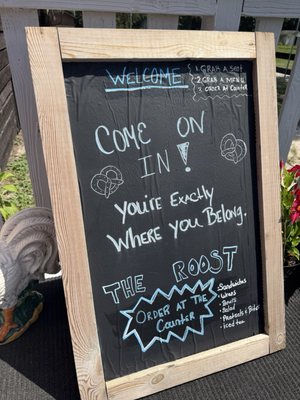 WELCOME
1. GRAB A SEAT
2. GRAB A MENU
3. ORDER AT COUNTER
COME ON
IN!
you're Exactly
Where you Belong.
THE ROOST
ORDER AT
THE
Counter
Sandwiches
Wraps
Soups
Salad
Pretzels & Bites
Iced tea